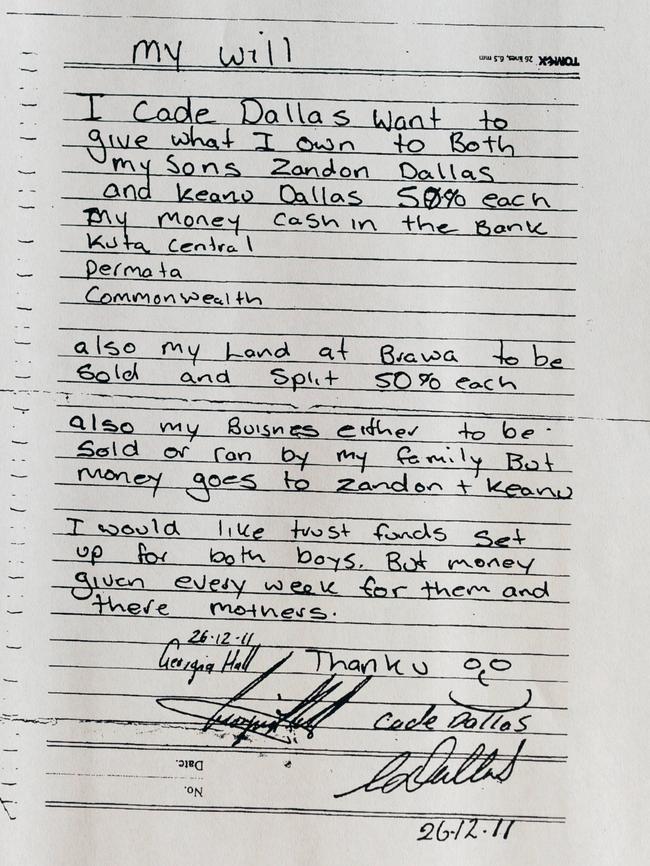 my will
TOMEX 26 lines, 6.5 mm
I Cade Dallas want to
give what I own to Both
my Sons Zandon Dallas
and Keano Dallas 50% each
my money cash in the Bank
Kuta Central
Permata
Commonwealth
also my Land at Brawa to be
Sold and Split 50% each
also my Buisnes either to be
Sold or ran by my family But
money goes to Zandon + Keano
I would like trust funds Set
up for both boys. But money
given every week for them and
there mothers.
26-12-11
Georgia Hall
Thank u
Cade Dallas
26-12-11
Date:
No.